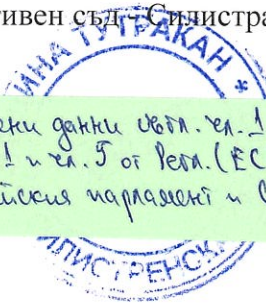 тивен съд - Силистра
ИНА ТУТРАКАН *
ни данни съгл. чл. 1
1 и чл. 5 от Регл. (ЕС
йския парламент и С
ИЛИСТРЕНСК